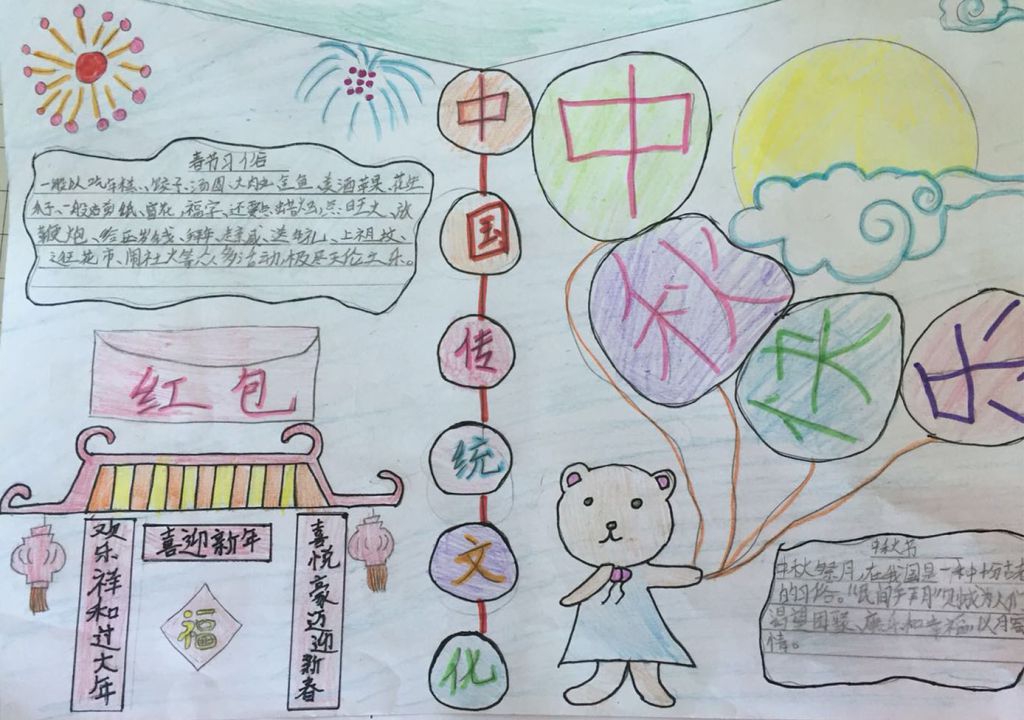 春节习俗
一般以吃年糕、饺子、汤圆、大肉丸、全鱼、美酒、苹果、花生
瓜子、一般贴剪纸、窗花、福字、还要点蜡烛、点旺火、放
鞭炮、给压岁钱、拜年、走亲戚、送年礼、上祖坟、
逛花市、闹社火等众多活动,极尽天伦之乐。
红包
喜迎新年
欢乐祥和过大年
福
喜悦豪迈迎新春
中国传统文化
中秋快乐
中秋节
中秋祭月,在我国是一种十分古老
的习俗。
渴望团聚、康乐和幸福,以月寄
情。